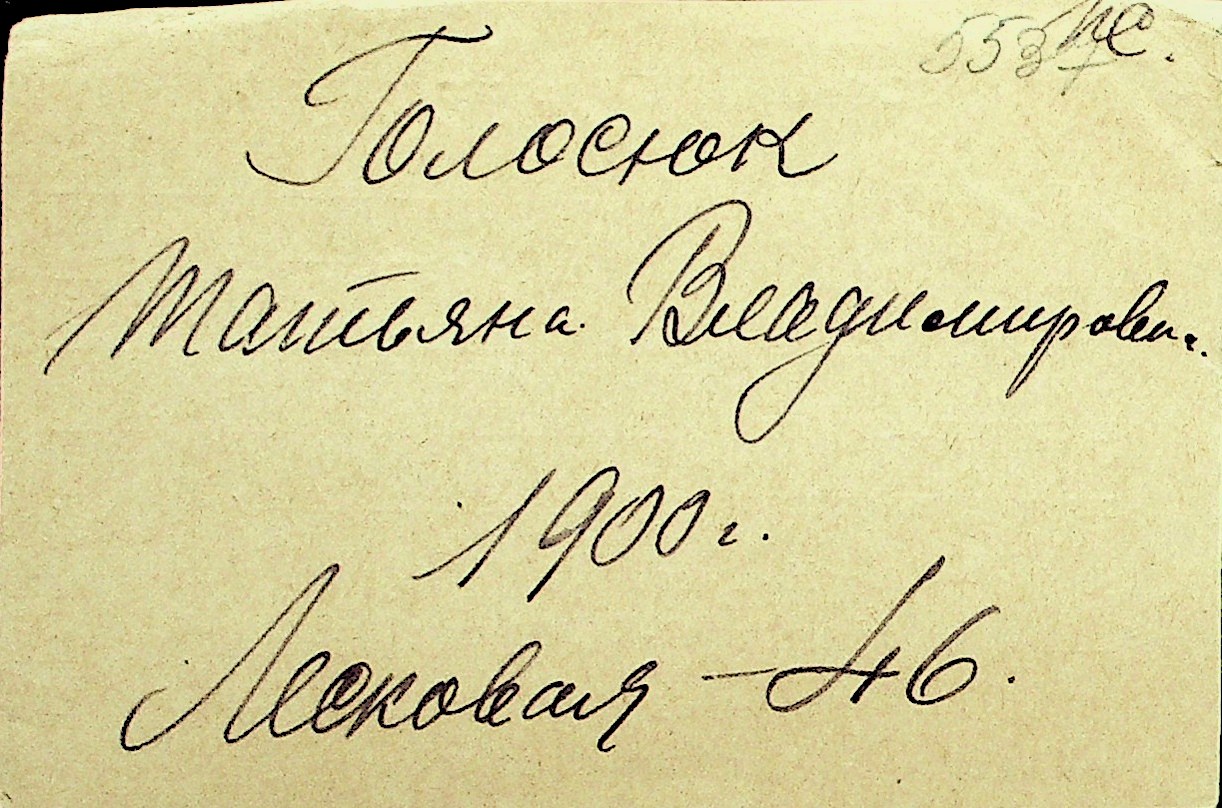 553
Голосюк
Татьяна Владимировн.
1900 г.
Лесковая - 46.